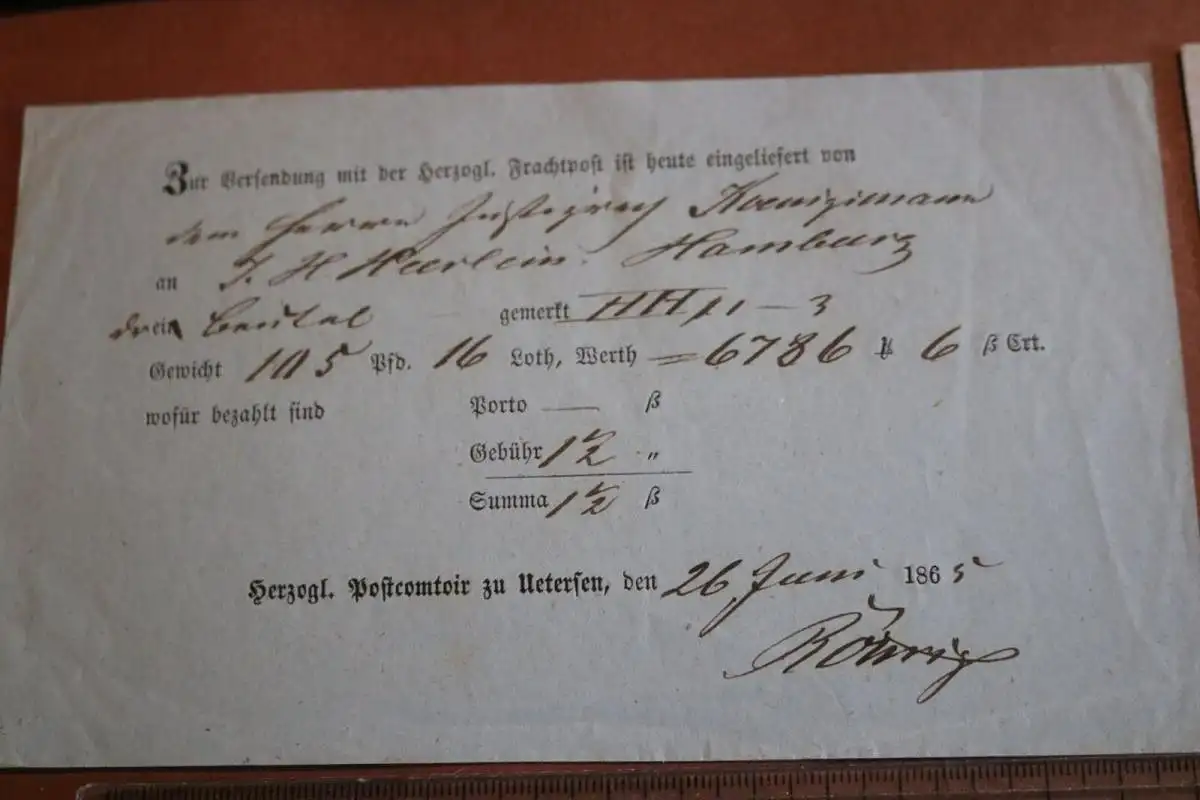 Zur Versendung mit der Herzogl. Frachtpost ist heute eingeliefert von
dem Herrn Justizrath
an J. H. Hamburg
drei Beutel gemerkt HH 1 – 3
Gewicht 105 Pfd. 16 Loth, Werth = 6786 ₰ 6 ß Crt.
wofür bezahlt sind Porto — ß
Gebühr 1½ "
Summa 1½ ß
Herzogl. Postcomtoir zu Uetersen, den 26 Juni 1865